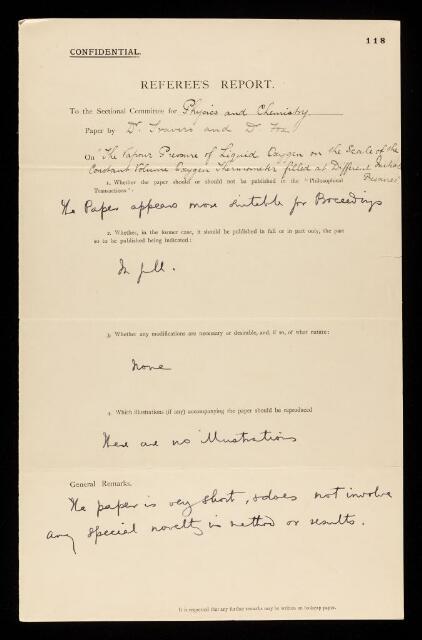 118
CONFIDENTIAL.
REFEREE'S REPORT.
To the Sectional Committee for Physics and Chemistry
Paper by Dr. Travers and Dr. Fox
On "The Vapour Pressure of Liquid Oxygen on the Scale of the
Constant Volume Oxygen Thermometer filled at Different Initial
Pressures"
1. Whether the paper should or should not be published in the "Philosophical
Transactions":
The Paper appears more suitable for Proceedings
2. Whether, in the former case, it should be published in full or in part only, the part
so to be published being indicated:
In full.
3. Whether any modifications are necessary or desirable, and, if so, of what nature:
None
4. Which illustrations (if any) accompanying the paper should be reproduced
There are no illustrations
General Remarks.
The paper is very short, & does not involve
any special novelty in method or results.
It is requested that any further remarks may be written on foolscap paper.